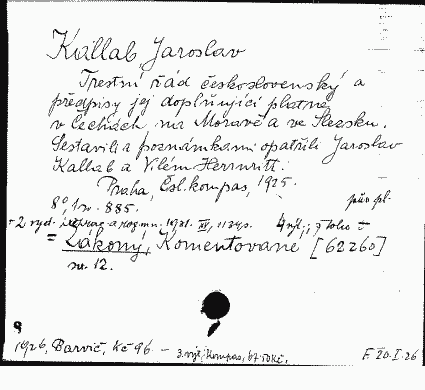 Kallab, Jaroslav
Trestní řád československý a
předpisy jej doplňující platné
v Čechách, na Moravě a ve Slezsku.
Sestavili a poznámkami opatřili Jaroslav
Kallab a Vilém Herrnritt.
Praha, Čsl. kompas, 1925.
8°, 885. původ pl.
+ 2 vyd. 1931. XV, 1124 s.
= Zákony, Komentované [62260]
sv. 12.
1926, Barvič, Kč 96. – 3. výt. Kompas, 67.50 Kč. F 20.I.26